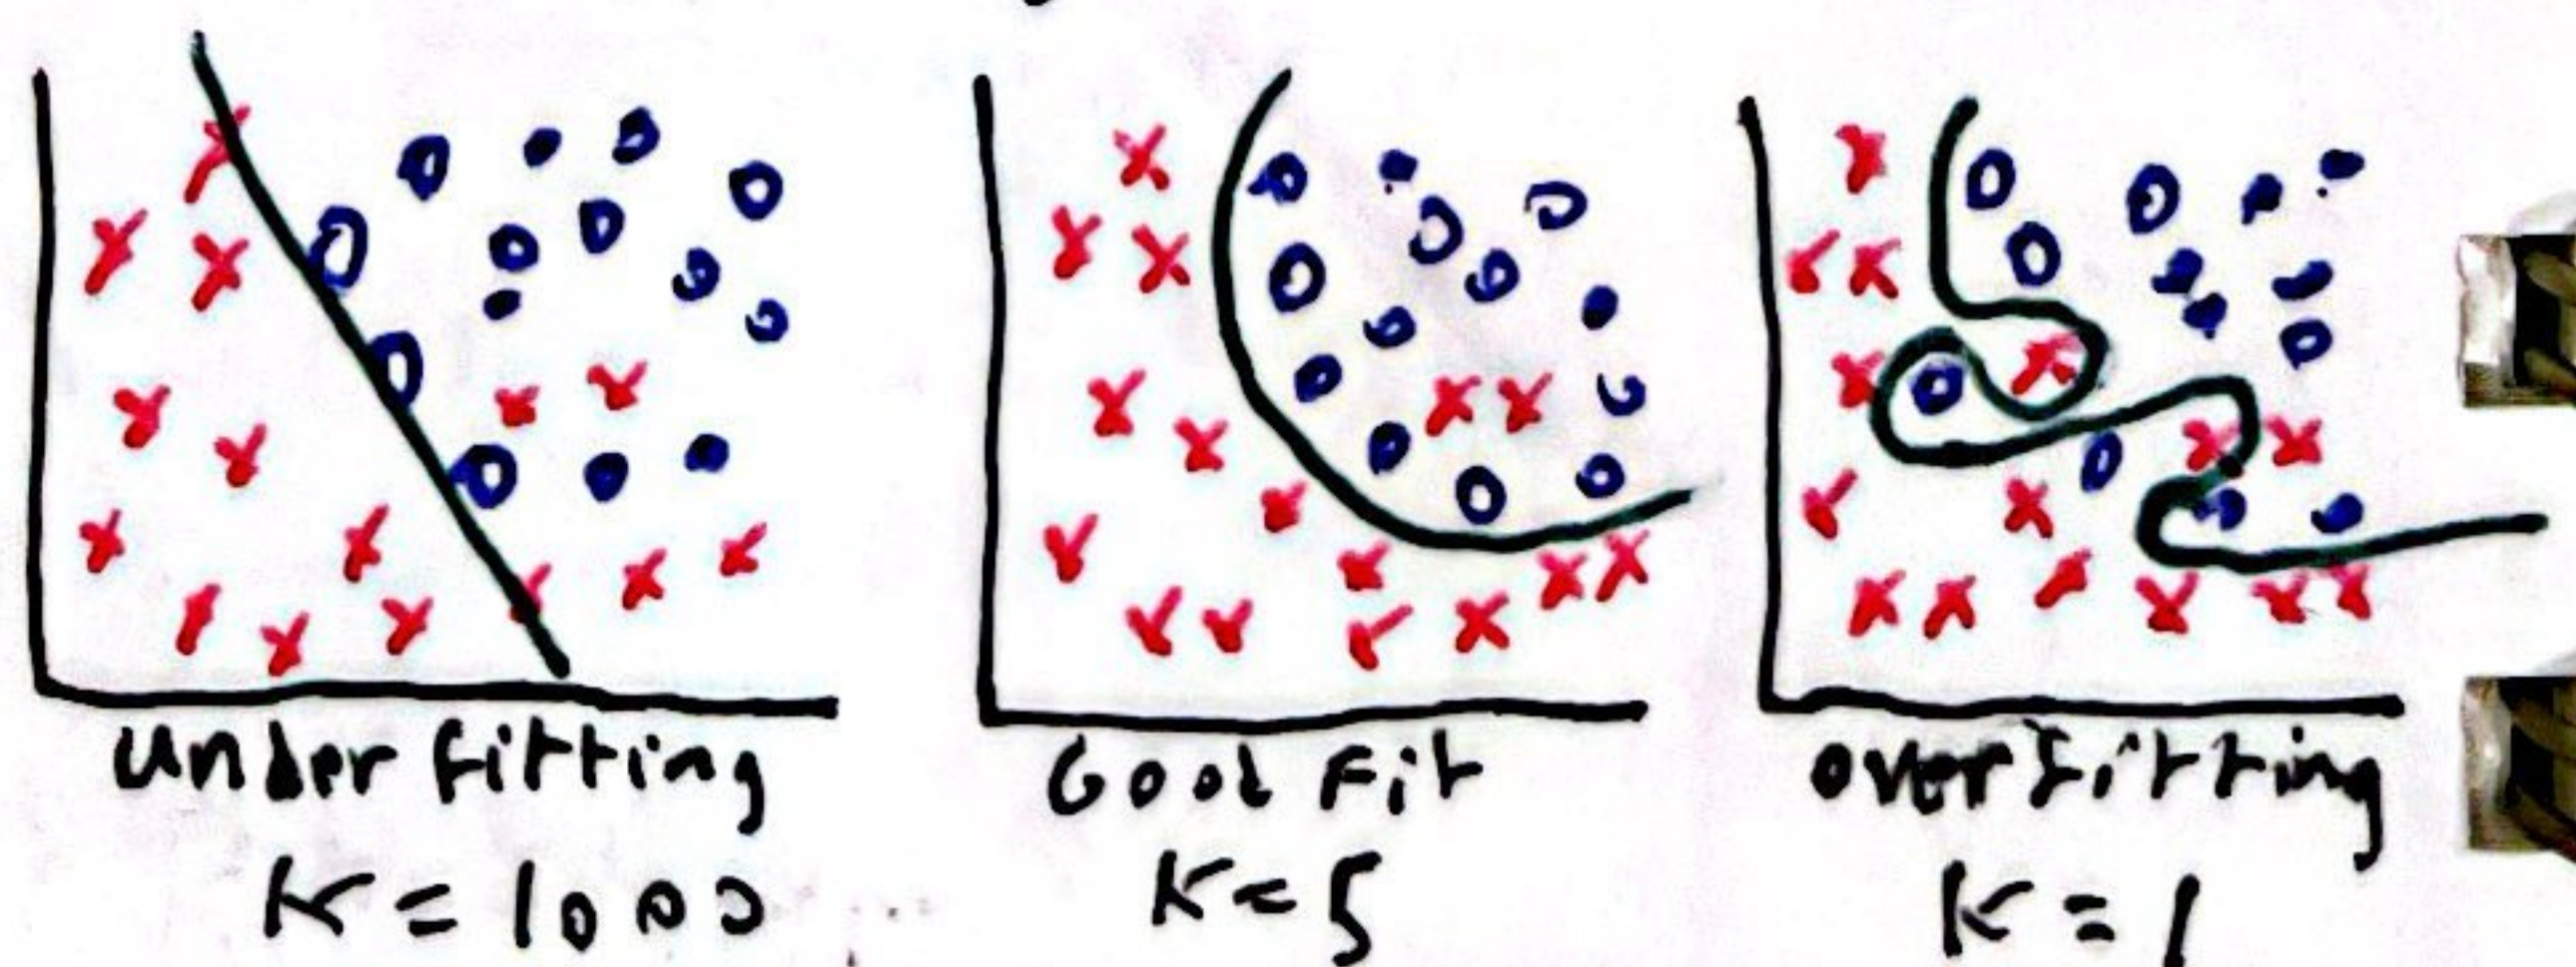 Under fitting
K = 1000
Good Fit
K = 5
over fitting
K = 1